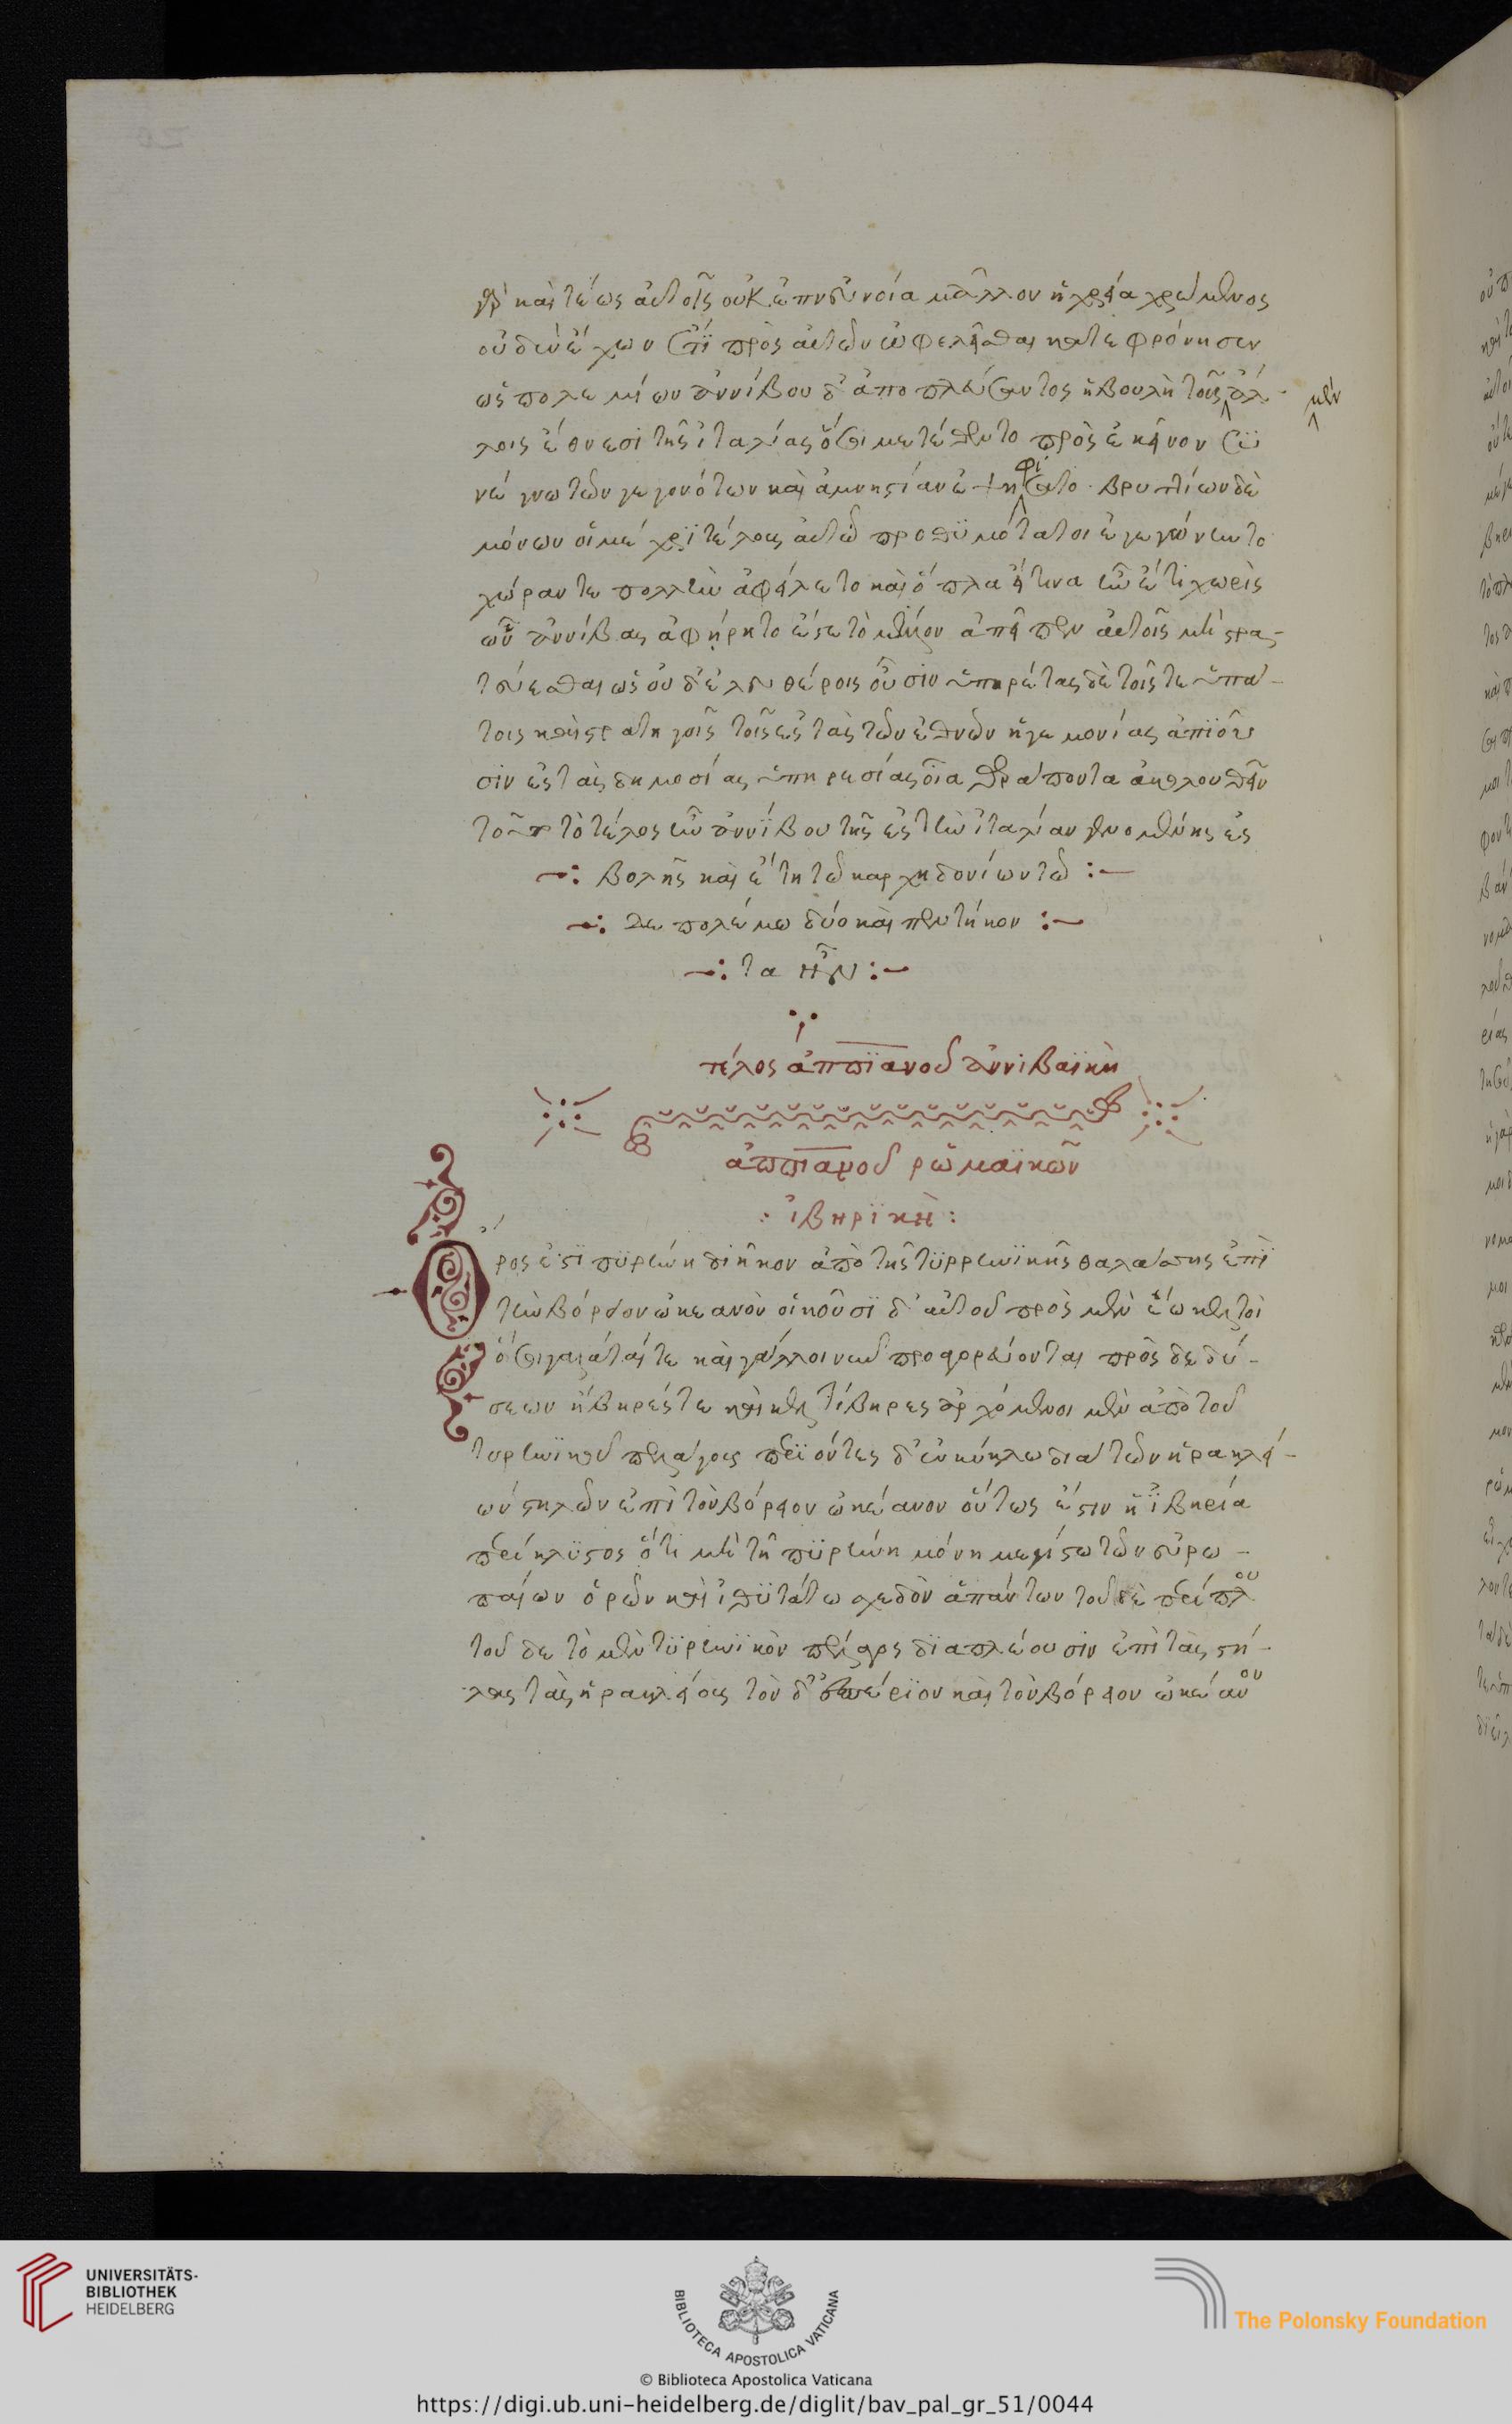 γὰρ καὶ τέως αὐτοῖς οὐκ ἐπ' εὐνοία μᾶλλον ἢ χρεία χρώμενος
οὐδὲν ἔχων ἔτι πρὸς αὐτῶν ὠφελεῖσθαι κατεφρόνησεν
ὡς πολεμίων ἀννίβου δ' ἀποπλεύσαντος ἡ βουλὴ τοῖς ἀλ-
μὲν
λοις ἔθνεσι τῆς ἰταλίας ὅσοι μετέθεντο πρὸς ἐκεῖνον συ
νέγνω τῶν γεγονότων καὶ ἀμνηστίαν ἐψηφίσατο. βρυττίων δὲ
μόνων οἳ μέχρι τέλους αὐτῷ προθυμότατοι ἐγεγένηντο
χώραν τε πολλὴν ἀφείλετο καὶ ὅπλα εἴ τινα ἦν ἔτι χωρὶς
ὧν ἀννίβας ἀφήρητο ἔς τὸ μέλλον ἀπεῖπεν αὐτοῖς μὴ στρα-
τεύεσθαι ὡς οὐδ' ἐλευθέροις οὖσιν ὑπηρέτας δὲ τοῖς τε ὑπά-
τοις καὶ στρατηγοῖς τοῖς ἐς τὰς τῶν ἐθνῶν ἡγεμονίας ἀπιοῦ
σιν ἐς τὰς δημοσίας ὑπηρεσίας οἷα θεράποντα ἀκολουθεῖν
τοῦτο τὸ τέλος ἦν ἀννίβου τῆς ἐς τὴν ἰταλίαν γενομένης ἐς
βολῆς καὶ ἔτη τῷ καρχηδονίων τῷ
δε πολέμω δύο καὶ πεντήκον
τα ἦν
τέλος ἀππϊανοῦ ἀννιβαϊκὴ
ἀππιανοῦ ῥωμαϊκῶν
: ἰβηρϊκὴ :
Ὄρος ἐστὶ πυρήνη διῆκον ἀπὸ τῆς τυρρηνικῆς θαλάττης ἐπὶ
τὸν βόρειον ὠκεανὸν οἰκοῦσι δ' αὐτοῦ πρὸς μὲν ἕω κελτοὶ
ὅσοι γαλάται τε καὶ γάλλοι νῦν προσαγορεύονται πρὸς δὲ δύ-
σεων ἴβηρές τε καὶ κελτίβηρες ἀρχόμενοι μὲν ἀπὸ τοῦ
τυρηνικοῦ πελάγους περϊόντες δ' ἐν κύκλω διὰ τῶν ἡρακλεί-
ων στηλῶν ἐπὶ τὸν βόρειον ὠκέανον οὕτως ἐστιν ἡ ἰβηρία
περίκλυστος ὅτι μὴ τῇ πυρήνη μόνη μεγίστω τῶν εὐρω-
παίων ὀρῶν καὶ ἰθυτάτω σχεδὸν ἁπάντων τοῦδὲ περίπλου
τοῦ δε τὸ μὲν τυρηνικὸν πέλαγος διαπλέουσιν ἐπὶ τὰς στή-
λας τὰς ἡρακλείους τὸν δ' ἑσπέριον καὶ τὸν βόρειον ὠκέανον
UNIVERSITÄTS-
BIBLIOTHEK
HEIDELBERG
BIBLIOTECA APOSTOLICA VATICANA
The Polonsky Foundation
© Biblioteca Apostolica Vaticana
https://digi.ub.uni-heidelberg.de/diglit/bav_pal_gr_51/0044